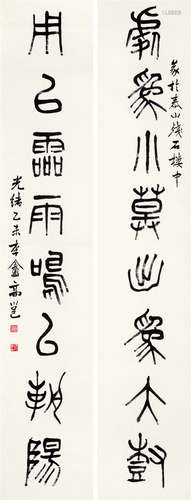 處為小出為大
篆於泰山殘石樓中
用以霝雨鳴以朝陽
光緒乙未李盦高邕